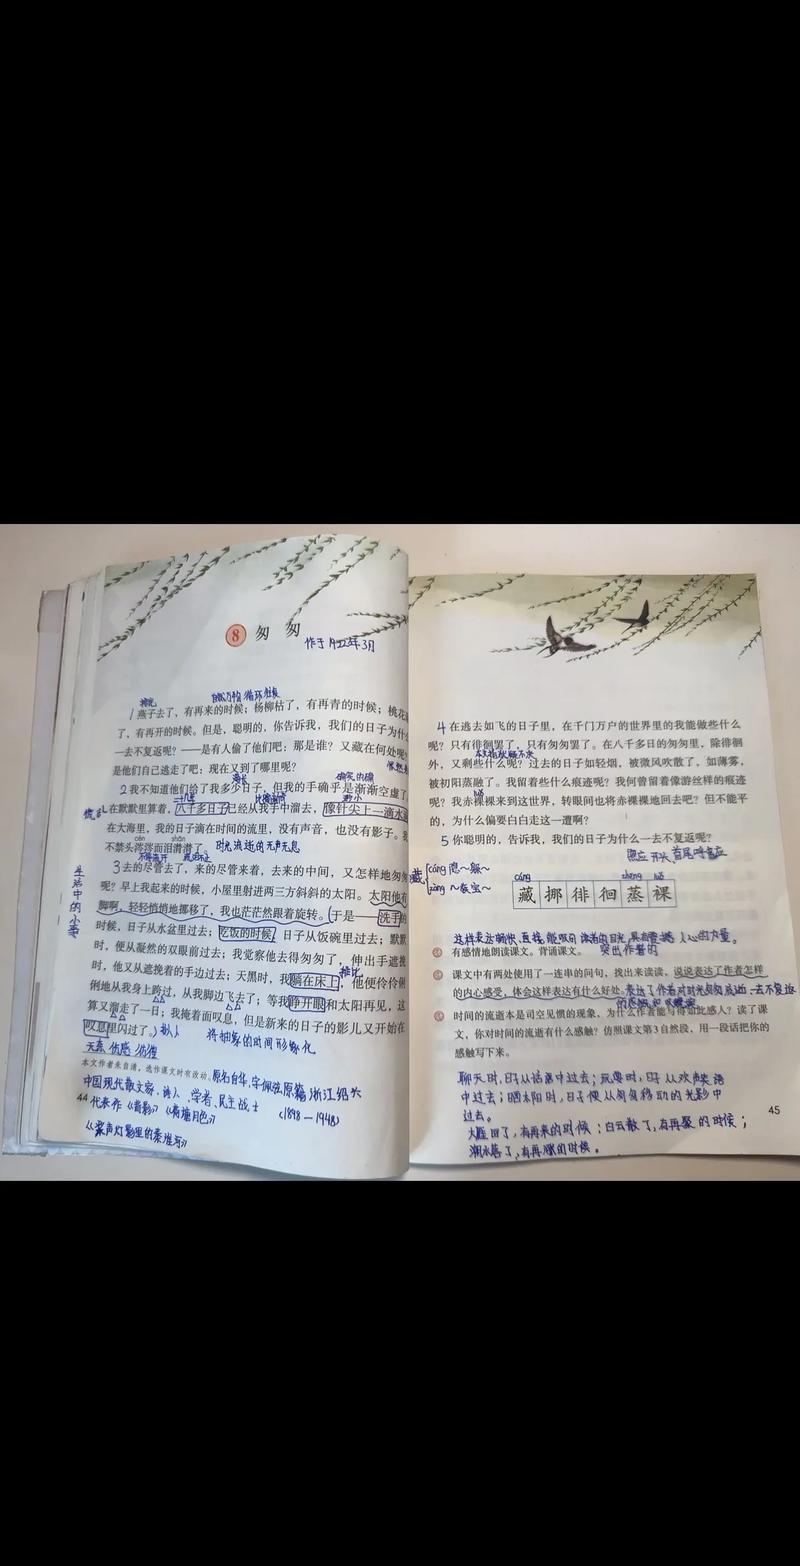 8 匆匆
作于1922年3月
排比
1 燕子去了，有再来的时候；杨柳枯了，有再青的时候；桃花
了，有再开的时候。但是，聪明的，你告诉我，我们的日子为什
一去不复返呢？——是有人偷了他们吧：那是谁？又藏在何处呢
是他们自己逃走了吧：现在又到了哪里呢？
2 我不知道他们给了我多少日子，但我的手确乎是渐渐空虚了
在默默里算着，八千多日子已经从我手中溜去，像针尖上一滴水
在大海里，我的日子滴在时间的流里，没有声音，也没有影子。我
cén shān
不禁头涔涔而泪潸潸了。 时光流逝的无声无息
3 去的尽管去了，来的尽管来着，去来的中间，又怎样地匆匆
呢？早上我起来的时候，小屋里射进两三方斜斜的太阳。太阳他有
脚啊，轻轻悄悄地挪移了，我也茫茫然跟着旋转。于是——洗手的
时候，日子从水盆里过去；吃饭的时候，日子从饭碗里过去；默默
时，便从凝然的双眼前过去；我觉察他去得匆匆了，伸出手遮挽
时，他又从遮挽着的手边过去；天黑时，我躺在床上，他便伶伶俐
俐地从我身上跨过，从我脚边飞去了；等我睁开眼和太阳再见，这
算又溜走了一日；我掩着面叹息，但是新来的日子的影儿又开始在
叹息里闪过了。 拟人 将抽象的时间形象化
生活中的小事
无奈 伤感 彷徨
本文作者朱自清，选作课文时有改动。原名自华，字佩弦，原籍浙江绍兴
中国现代散文家、诗人、学者、民主战士 （1898—1948）
44 代表作《背影》《荷塘月色》
《桨声灯影里的秦淮河》
4 在逃去如飞的日子里，在千门万户的世界里的我能做些什么
呢？只有徘徊罢了，只有匆匆罢了。在八千多日的匆匆里，除徘徊
外，又剩些什么呢？过去的日子如轻烟，被微风吹散了，如薄雾，
被初阳蒸融了。我留着些什么痕迹呢？我何曾留着像游丝样的痕迹
呢？我赤裸裸来到这世界，转眼间也将赤裸裸地回去吧？但不能平
的，为什么偏要白白走这一遭啊？
5 你聪明的，告诉我，我们的日子为什么一去不复返呢？
照应开头 首尾呼应
藏 cáng 隐～ 躲～
zàng ～族 宝～
cáng zhēng luǒ
藏 挪 徘 徊 蒸 裸
有感情地朗读课文。背诵课文。
课文中有两处使用了一连串的问句，找出来读读，说说表达了作者怎样
的内心感受，体会这样表达有什么好处。
时间的流逝本是司空见惯的现象，为什么作者能写得如此感人？读了课
文，你对时间的流逝有什么感触？仿照课文第3自然段，用一段话把你的
感触写下来。
聊天时，日子从话语中过去；玩耍时，日子从欢声笑语
中过去；晒太阳时，日子便从匆匆移动的光影中
过去。
大雁回了，有再来的时候；白云散了，有再聚的时候；
潮水落了，有再涨的时候。
45